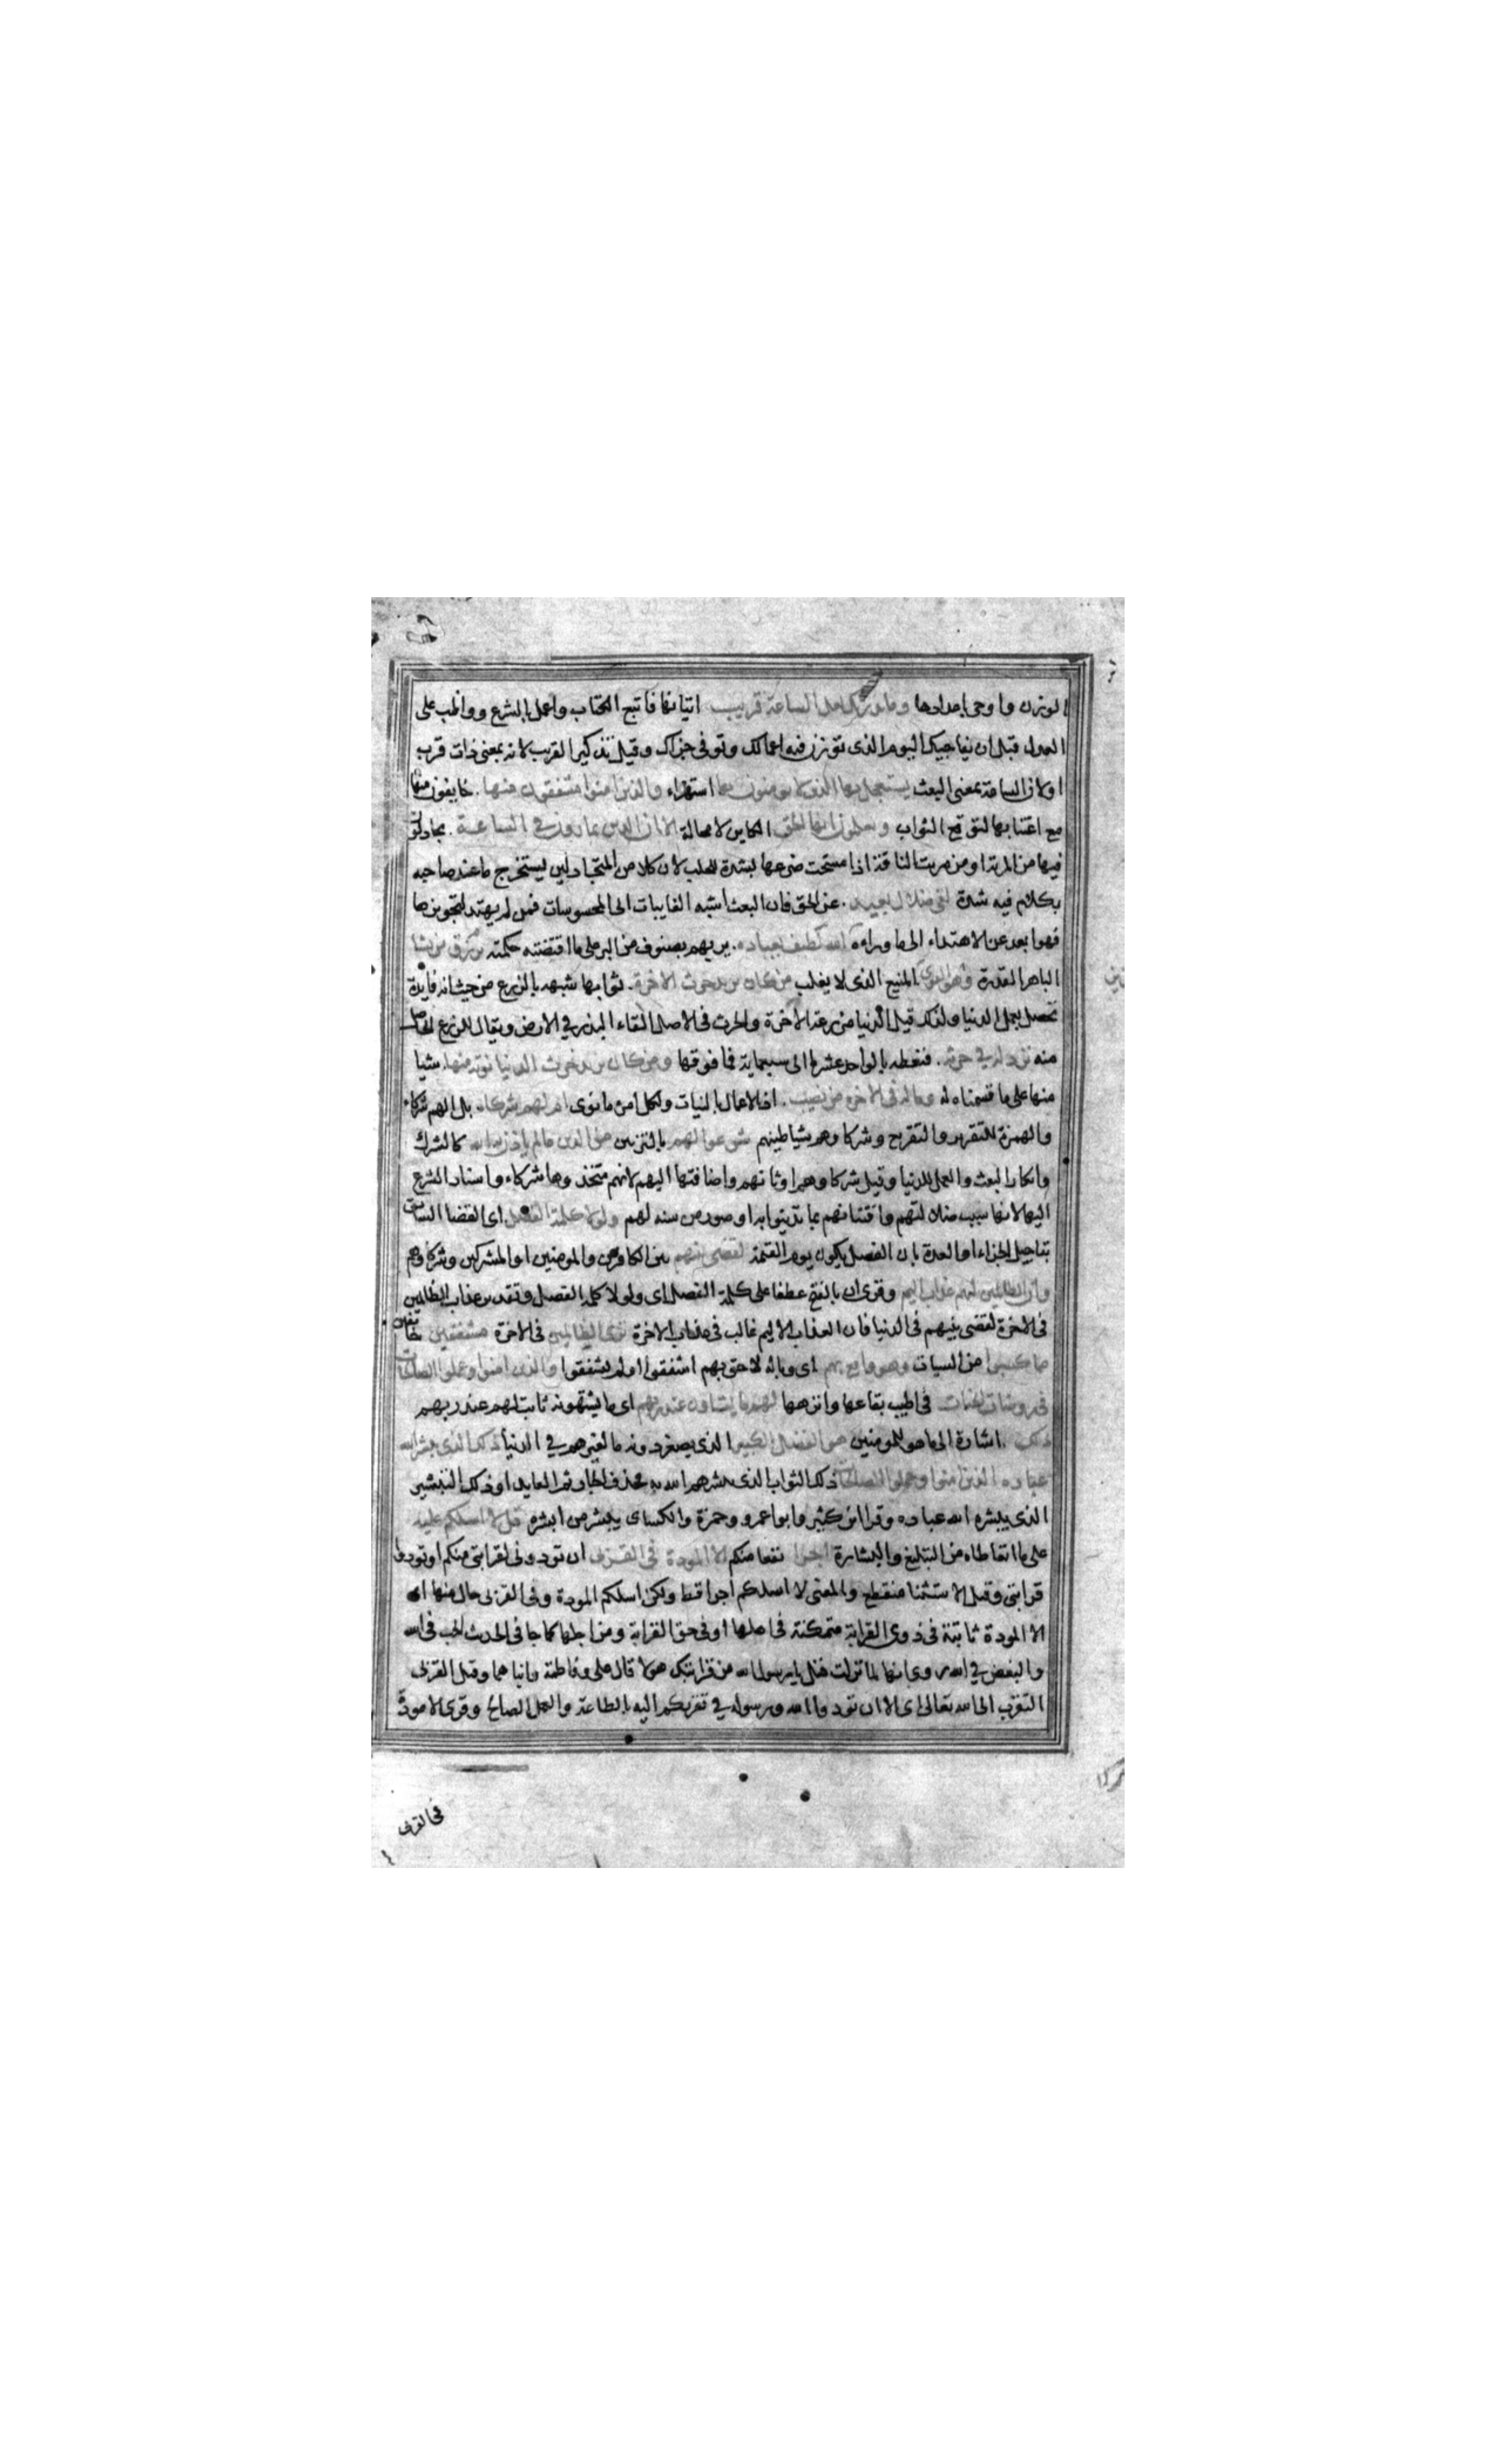 الوزن واوحى باعدادها وما يدريك لعل الساعة قريب اتيانها فاتبع الكتاب واعمل بالشرع وواظب على
العدل قبل ان يفاجيك اليوم الذى توزن فيه اعمالك وتوفى جزاك وقيل تذكير القريب لانه بمعنى ذات قرب
اولان الساعة بمعنى البعث يستعجل بها الذين لا يومنون بها استهزاء والذين امنوا مشفقون منها خايفون منها
مع اعتنا بها لتوقع الثواب ويعلمون انها الحق الكاين لا محالة الا ان الذين يمارون فى الساعة يجادلون
فيها من المرية او من مريت الناقة اذا مسحت ضرعها لشدة للحلب لان كلا من المتجادلين يستخرج ما عند صاحبه
بكلام فيه شدة لفى ضلال بعيد عن الحق فان البعث اشبه الغايبات الى المحسوسات فمن لم يهتد لتجويزها
فهو ابعد عن الاهتداء الى ما وراءه الله لطيف بعباده يربهم بصنوف من البر على ما اقتضته حكمته يرزق من يشا
الباهر القدرة وهو القوى المنيع الذى لا يغلب من كان يريد حرث الاخرة ثوابها شبهه بالزرع من حيث انه فايدة
تحصل بعمل الدنيا ولذلك قيل الدنيا مزرعة الآخرة والحرث فى الاصل القاء البذر في الارض ويقال للزرع الحاصل
منه نزد له في حرثه فنعطه بالواحد عشرا الى سبعماية فما فوقها ومن كان يريد حرث الدنيا نوته منها شيا
منها على ما قسمناه له وماله فى الاخرة من نصيب اذ الاعمال بالنيات ولكل امرء ما نوى ام لهم شركاء بل الهم شركاء
والهمزة للتقرير والتقريع وشركاوهم شياطينهم شرعوا لهم بالتزيين من الدين مالم ياذن به الله كالشرك
وانكار البعث والعمل للدنيا وقيل شركاوهم اوثانهم واضافتها اليهم لانهم متخذوها شركاء واسناد الشرع
اليها لانها سبب ضلالتهم وافتتانهم بما تدينوا به او صور من سنه لهم ولولا كلمة الفصل اى القضا السابق
بتاجيل الجزاء او العدة بان الفصل يكون يوم القيمة لقضى بينهم بين الكافرين والمومنين او المشركين وشركاوهم
وان الظالمين لهم عذاب اليم وقرى ان بالفتح عطفا على كلمة الفصل اى ولولا كلمة الفصل وتقدير عذاب الظالمين
فى الاخرة لقضى بينهم فى الدنيا فان العذاب الاليم غالب فى عذاب الاخرة ترى الظالمين فى الاخرة مشفقين خائفين
مما كسبوا من السيات وهو واقع بهم اى وباله لاحق بهم اشفقوا اولم يشفقوا والذين امنوا وعملوا الصالحات
فى روضات الجنات فى اطيب بقاعها وانزهها لهم ما يشاون عند ربهم اى ما يشتهونه ثابت لهم عند ربهم
ذلك اشارة الى ما هو للمومنين هو الفضل الكبير الذى يصغر دونه ما لغيرهم في الدنيا ذلك الذى يبشر الله
عباده الذين امنوا وعملوا الصلحات ذلك الثواب الذى يبشرهم الله به فحذف الجار ثم العايد او ذلك التبشير
الذى يبشره الله عباده وقرا ابن كثير وابو عمرو وحمزة والكساى يبشر من ابشره قل لا اسلكم عليه
على ما اتعاطاه من التبليغ والبشارة اجرا نفعا منكم الا المودة فى القربى ان تودونى لقرابتى منكم او تودوا
قرابتى وقيل الاستثنا منقطع والمعنى لا اسلكم اجرا قط ولكن اسلكم المودة وفى القربى حال منها اى
الا المودة ثابتة فى ذوى القرابة متمكنة فى اهلها او فى حق القرابة ومن اجلها كما جا فى الحديث الحب فى الله
والبغض في الله روى انها لما نزلت قيل يا رسول الله من قرابتك هولا قال على وفاطمة وابناهما وقيل القربى
التقرب الى الله تعالى اى الا ان تودوا الله ورسوله في تقربكم اليه بالطاعة والعمل الصالح وقرى الا مودة
فى القربى